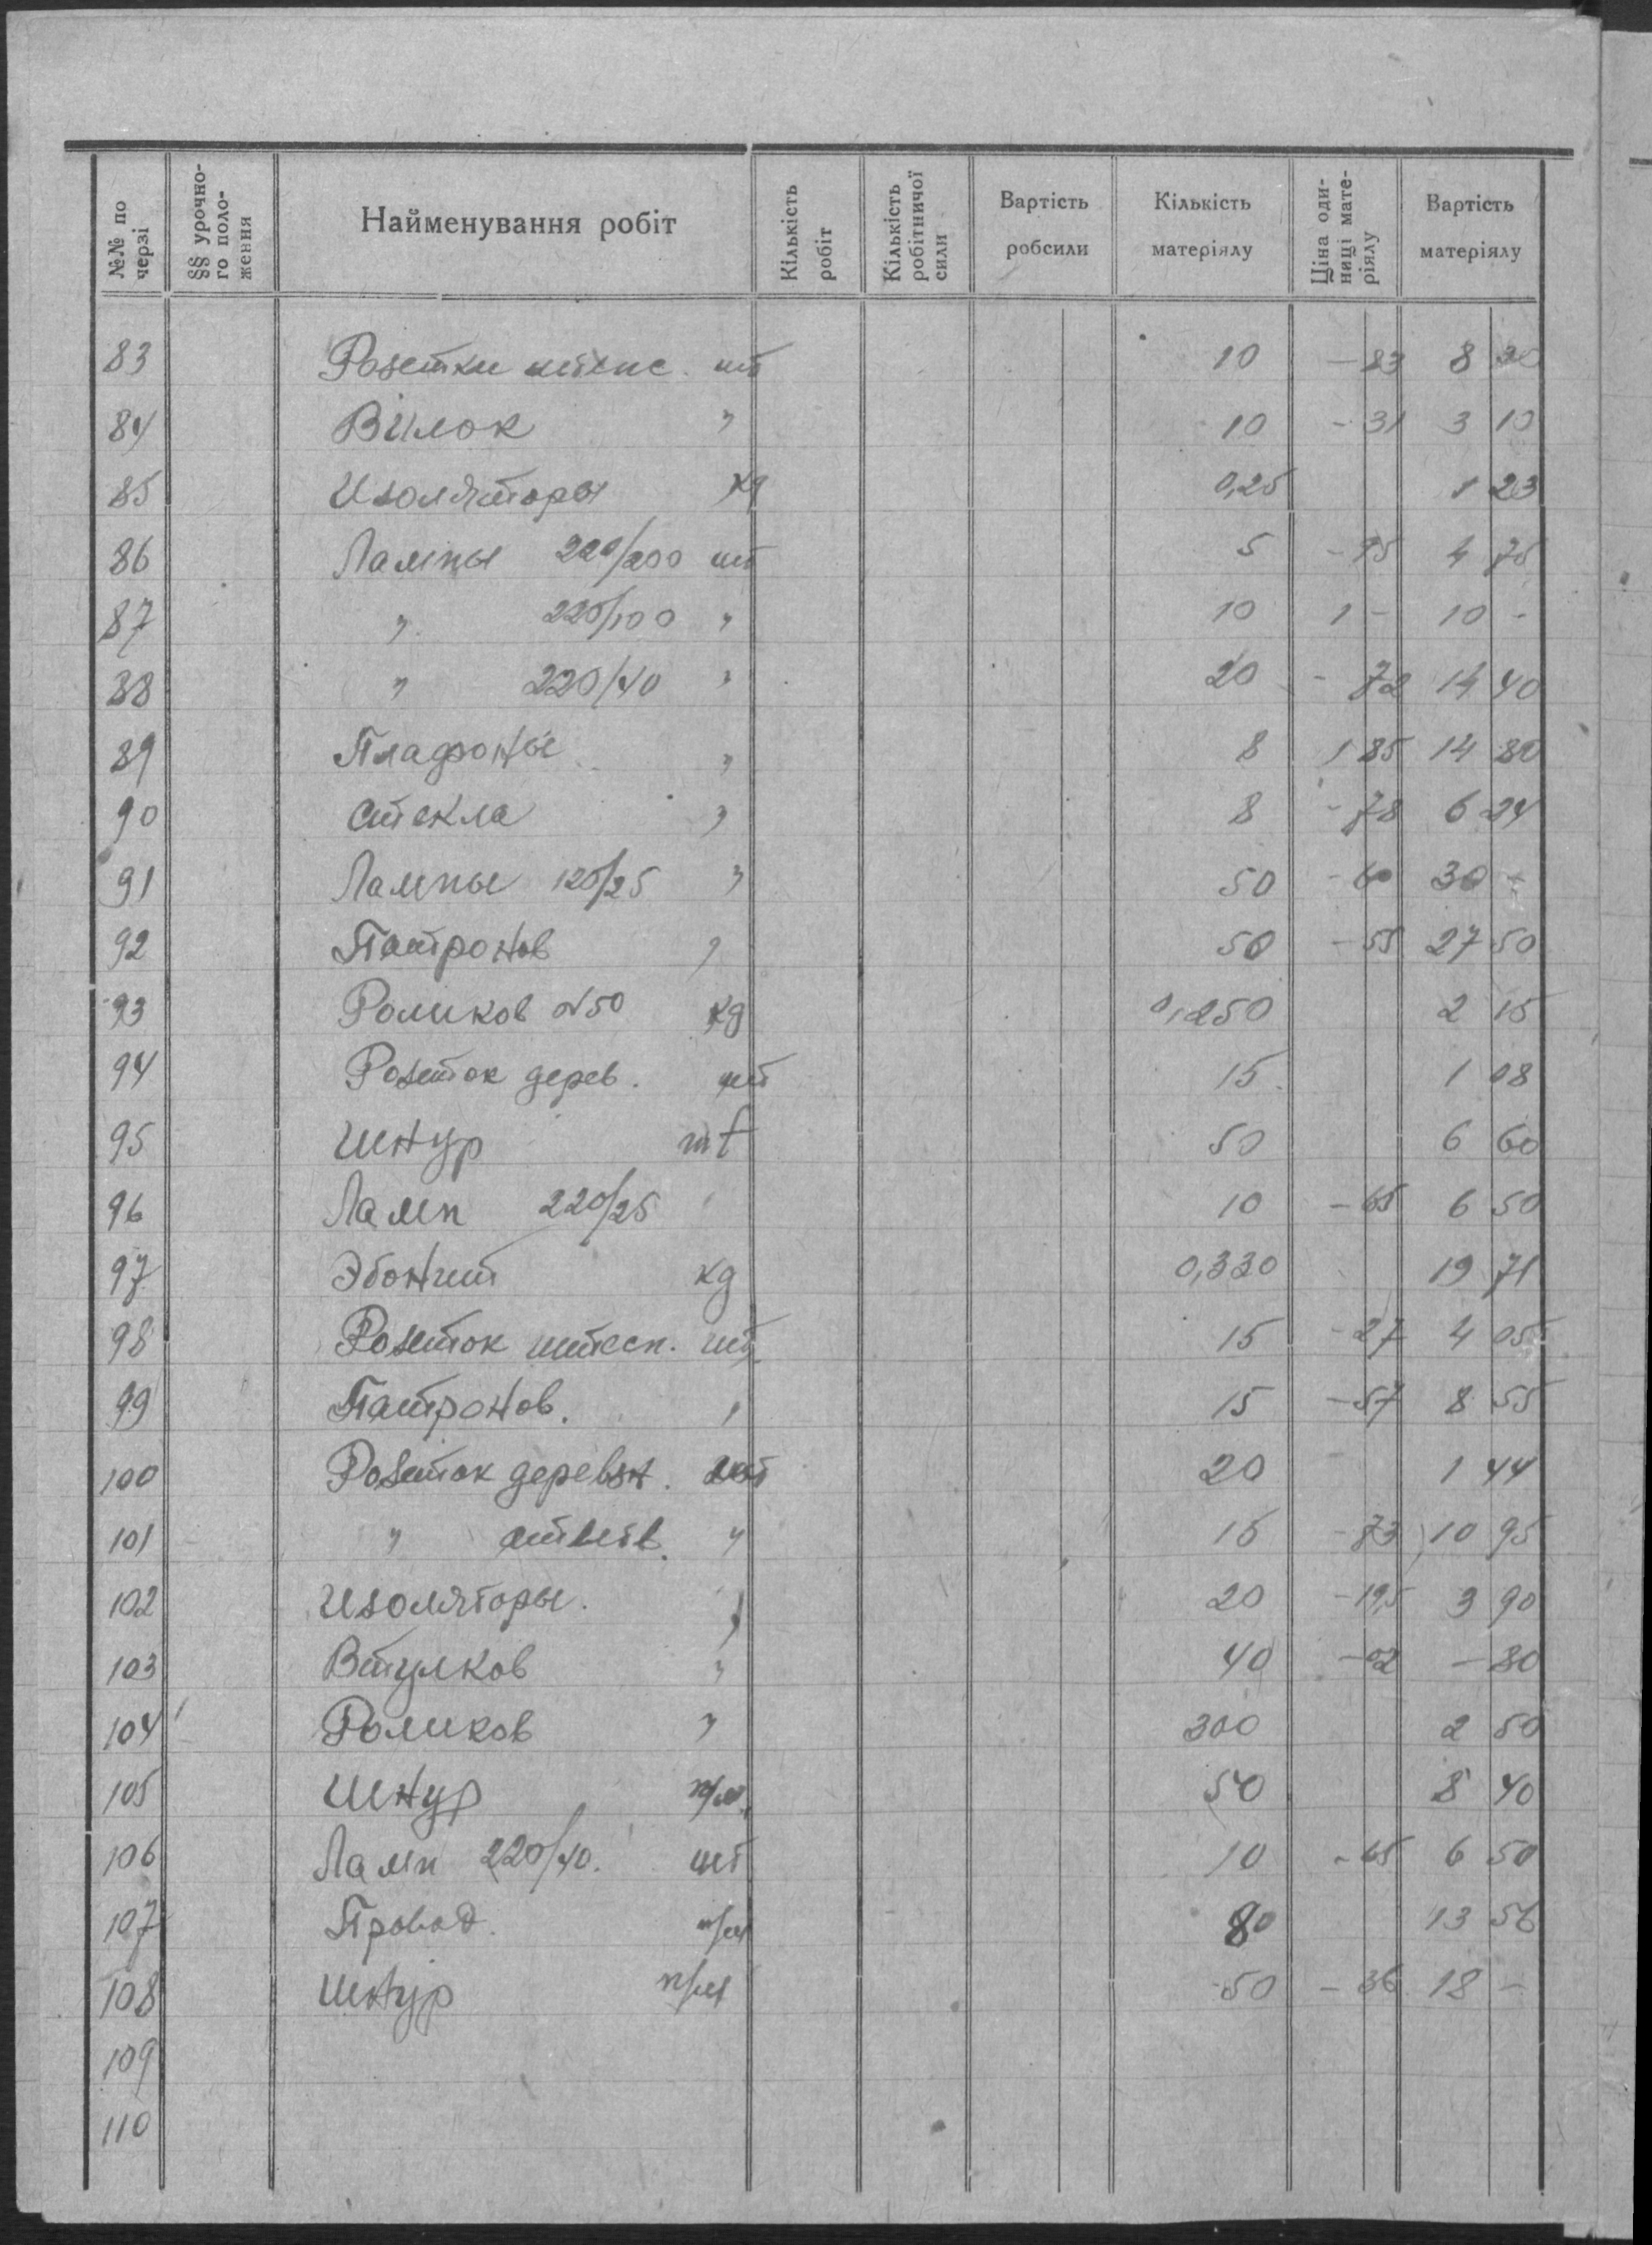 №№ по черзі | §§ урочно-го поло-ження | Найменування робіт | Кількість робіт | Кількість робітничої сили | Вартість робсили | Кількість матеріялу | Ціна оди-ниці мате-ріялу | Вартість матеріялу
83 Розетки штепс. шт 10 -83 8 30
84 Вилок " 10 -31 3 10
85 Изоляторы кg 0,25 1 23
86 Лампы 220/200 шт 5 -95 4 75
87 " 220/100 " 10 1 - 10 -
88 " 220/40 " 20 -72 14 40
89 Плафоны " 8 1 85 14 80
90 Стекла " 8 -78 6 24
91 Лампы 120/25 " 50 -60 30 -
92 Патронов " 50 -55 27 50
93 Роликов №50 кg 0,250 2 15
94 Розеток дерев. шт 15 1 08
95 Шнур mt 50 6 60
96 Ламп 220/25 10 -65 6 50
97 Эбонит кg 0,330 19 71
98 Розеток штесп. шт. 15 -27 4 05
99 Патронов. " 15 -57 8 55
100 Розеток деревян. шт 20 1 44
101 " ответв. " 15 -73 10 95
102 Изоляторы. " 20 -19,5 3 90
103 Втулков " 40 -02 -80
104 Роликов " 300 2 50
105 Шнур п/м. 50 8 40
106 Ламп 220/40. шт 10 -65 6 50
107 Провод. п/м 80 13 56
108 Шнур п/м 50 -36 18 -
109
110